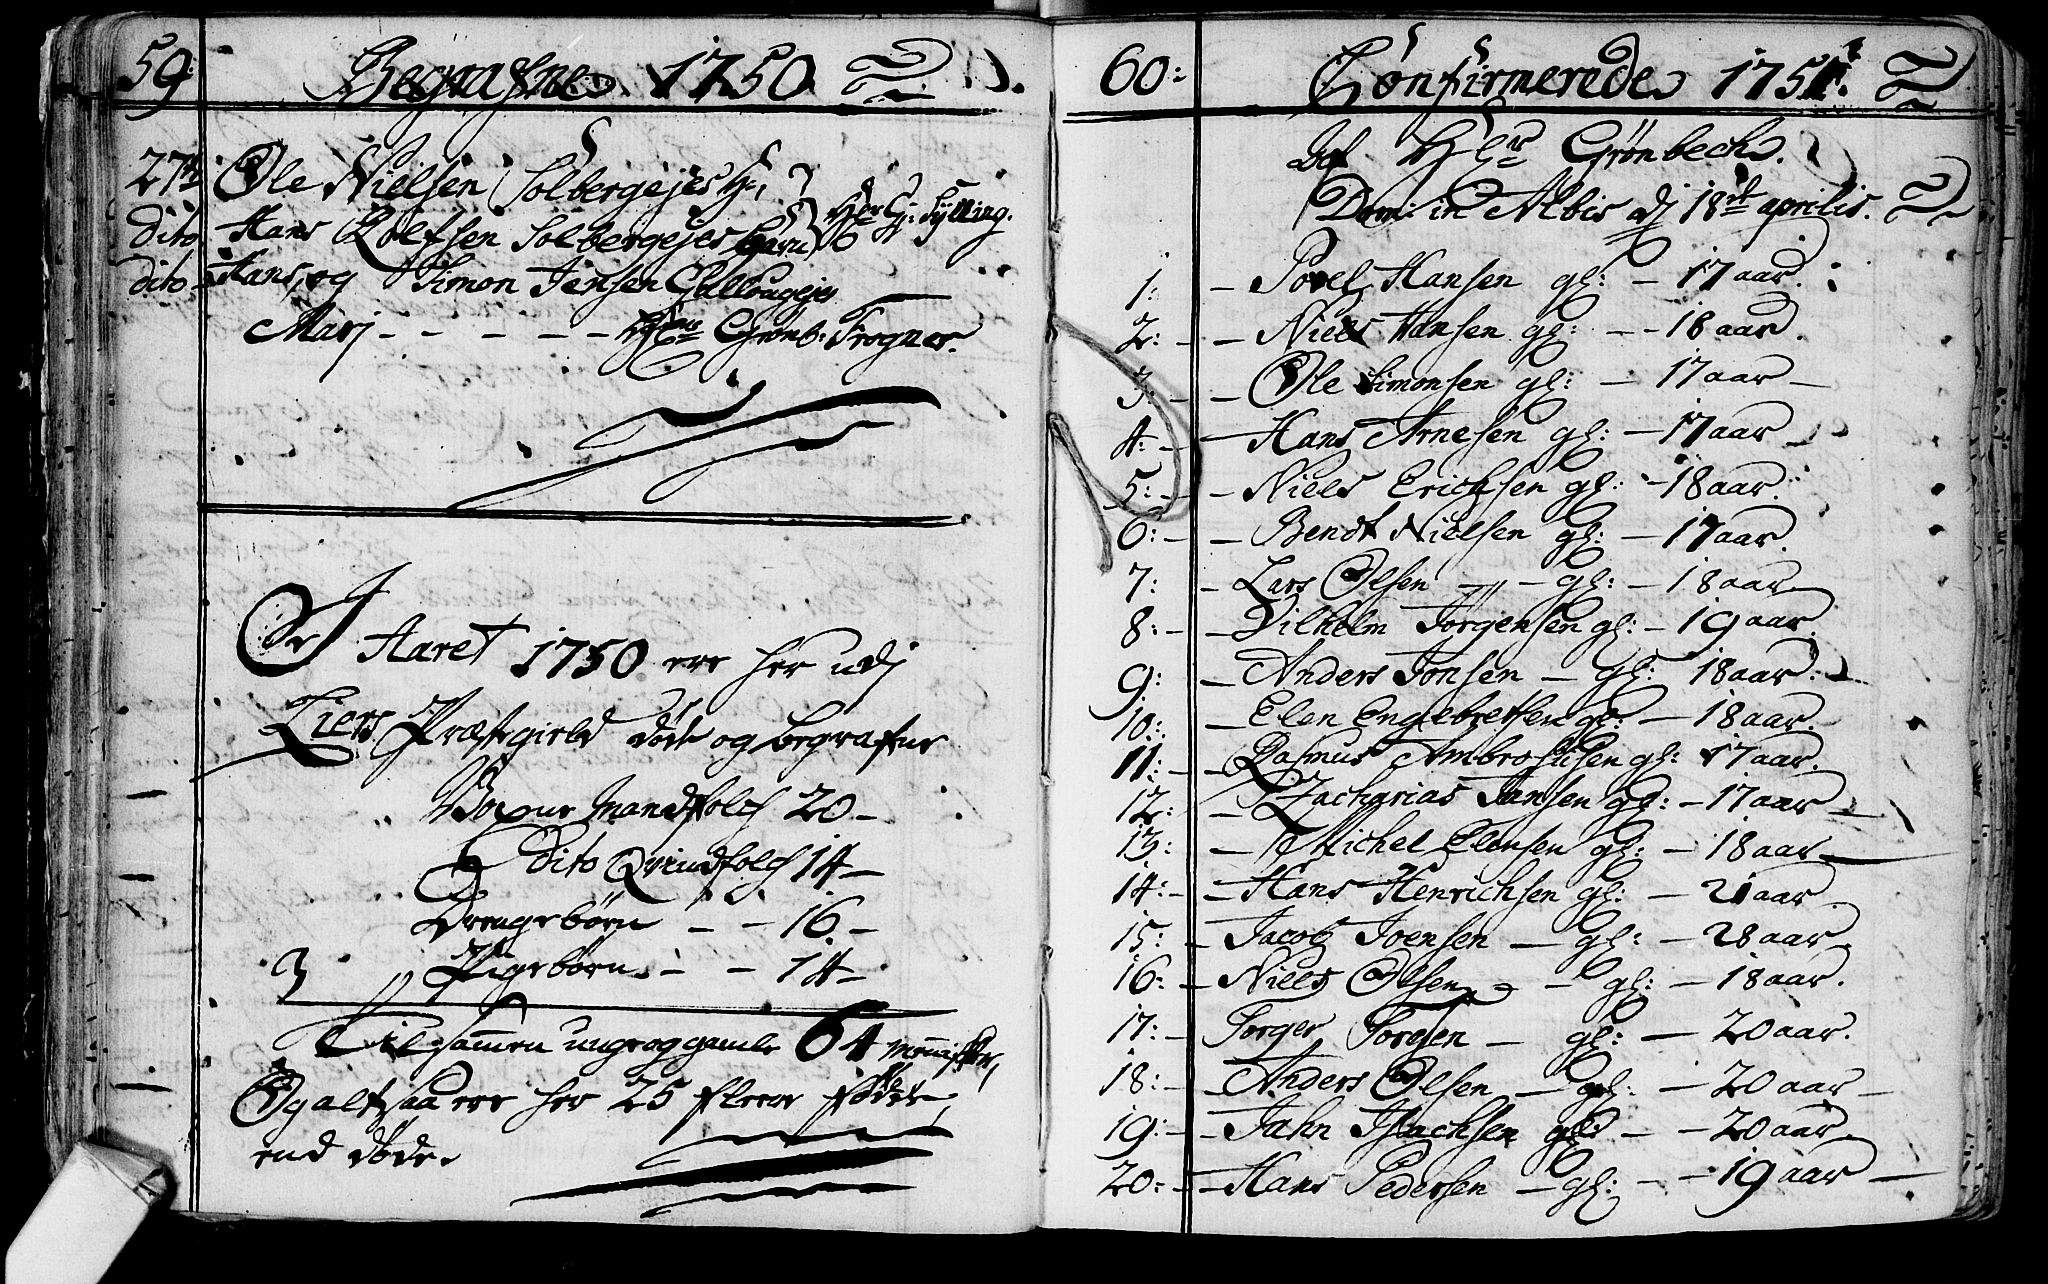 59:
Begrafne 1750
27de Ole Nielsen Solbergejes H:
dito Hans Rolfsen Solbergejes Barn Hr Gj: Sylling.
dito Hans, og Simon Jensen Gullougejes
Marj - - - - - Hr Grönb: Frogner.
I Aaret 1750 ere her udj
Liers Præstegield döde og begrafne
Voxne Mandfolch 20 -
Dito Qvindfolch 14 -
Drengebörn - - 16 -
Pigebörn - - 14 -
Tilsammen unge og gamle 64 Mennisker,
Og altsaa ere her 25 fleere födde,
end döde.
60:
Confirmerede 1751:
Af Hr Grönbech.
Domi: in Albis dj 18de aprilis.
1: - Povel Hansen gl: - 17 aar.
2: - - Niels Hansen gl: - - 18 aar.
3: - - Ole Simonsen gl: - 17 aar -
4: - - Hans Arnesen gl: - 17 aar -
5: - - Niels Erichsen gl: - 18 aar.
6: - - Bendt Nielsen gl: - 17 aar.
7: - Lars Olsen - gl: - 18 aar
8: - - Vilhelm Jörgensen gl: - 19 aar.
9: - Anders Jonsen - gl: 18 aar:
10: - Elen Engebretsen gl: - 18 aar.
11: - - Rasmus Ambrosiisen gl: 17 aar.
12: - Zacharias Jansen gl: - 17 aar
13: - Michel Elensen gl: - 18 aar
14: - - Hans Henrichsen gl: - 21 aar.
15: - Jacob Joensen - gl: - 28 aar.
16: - Niels Olsen - gl: - 18 aar.
17: - Torger Torgen - gl: - 20 aar.
18: - - Anders Olsen - gl: - 20 aar -
19: - - Jahn Isachsen gl: - - 20 aar.
20: - - Hans Pedersen - gl: - - 19 aar -